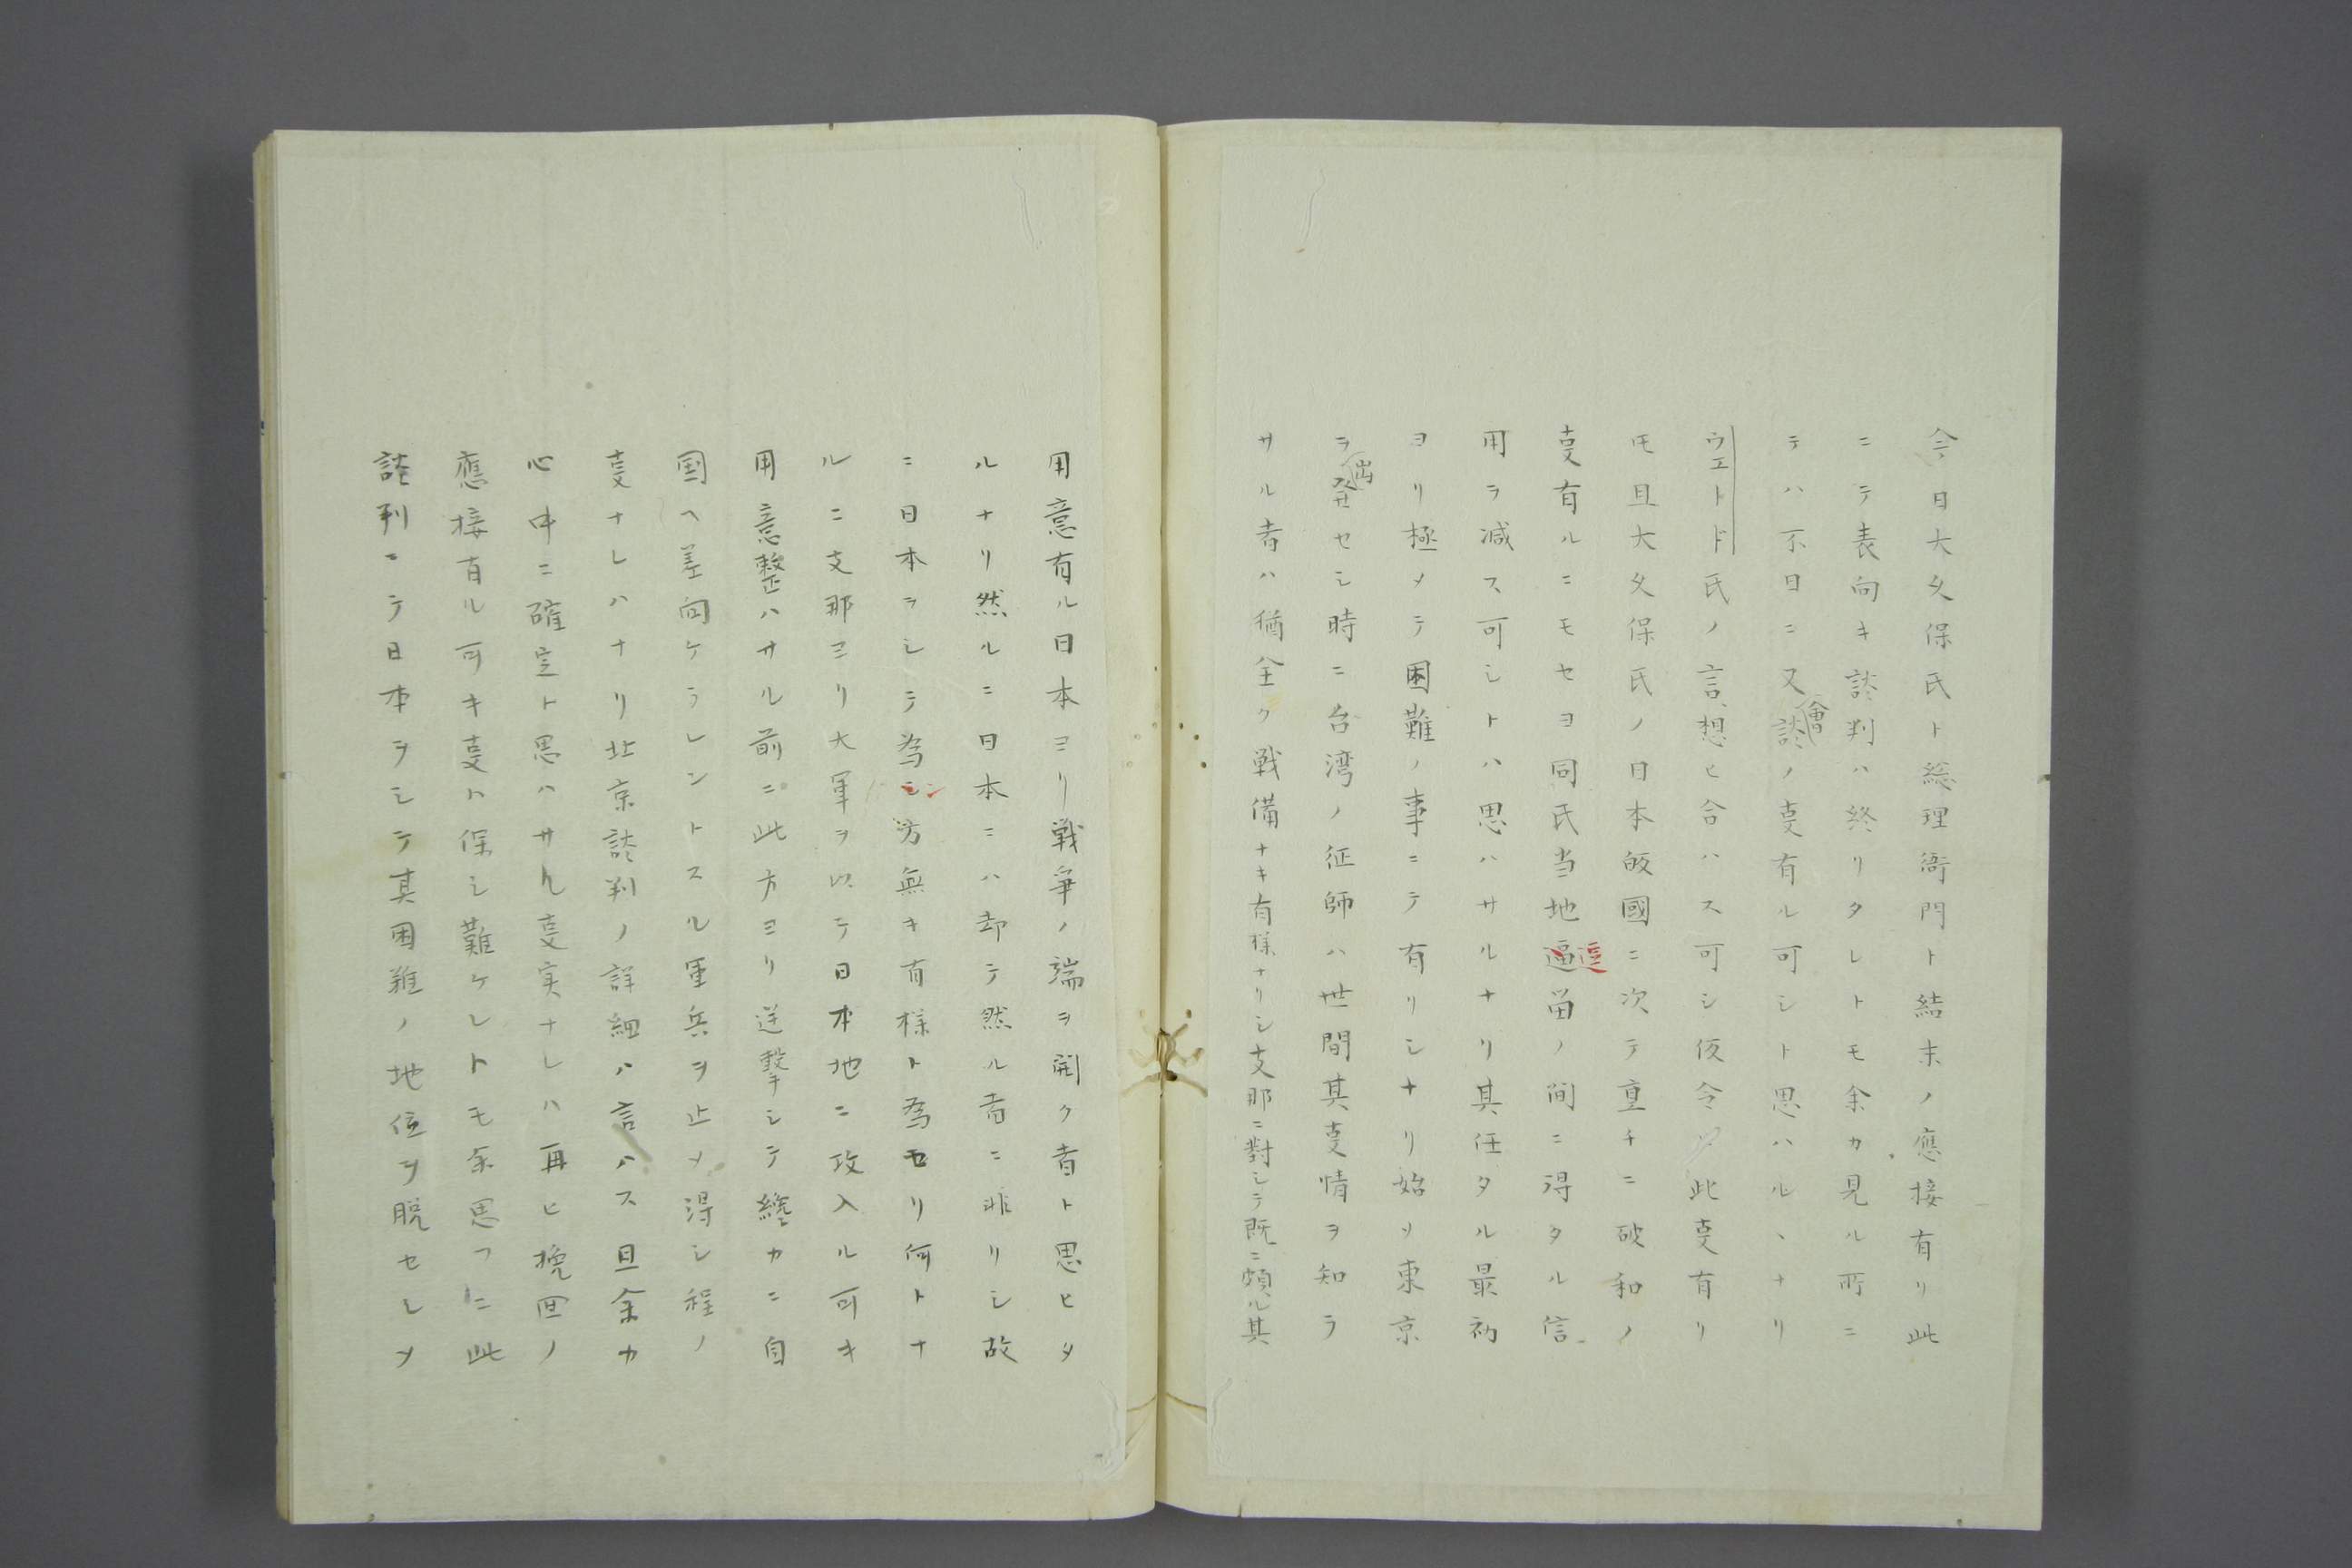 今日大久保氏ト総理衙門ト結末ノ應接有リ此
ニテ表向キ談判ハ終リタレトモ余カ見ル所ニ
テハ不日ニ又會談ノ叓有ル可シト思ハルヽナリ
ウエトド氏ノ言、想ヒ合ハス可シ仮令ヒ此叓有リ
モ且大久保氏ノ日本皈國ニ次テ直チニ破和ノ
叓有ルニモセヨ同氏当地逗畄ノ間ニ得タル信
用ヲ減ス可シトハ思ハサルナリ其任タル最初
ヨリ極メテ困難ノ事ニテ有リシナリ始メ東京
ヲ出発セシ時ニ台湾ノ征師ハ世間其叓情ヲ知ラ
サル者ハ猶全ク戦備ナキ有様ナリシ支那ニ對シテ既ニ頗ル其
用意有ル日本ヨリ戦争ノ端ヲ開ク者ト思ヒタ
ルナリ然ルニ日本ニハ却テ然ル者ニ非リシ故
ニ日本ヲシテ為シ方無キ有様ト為セリ何トナ
ルニ支那ヨリ大軍ヲ以テ日本地ニ攻入ル可キ
用意整ハサル前ニ此方ヨリ逆擊シテ纔カニ自
国ヘ差向ケラレントスル軍兵ヲ止メ得シ程ノ
叓ナレハナリ北京談判ノ詳細ハ言ハス且余カ
心中ニ確定ト思ハサル叓実ナレハ再ヒ挽回ノ
應接有ル可キ叓ハ保シ難ケレトモ余思フニ此
談判ニテ日本ヲシテ其困難ノ地位ヲ脱セシメ